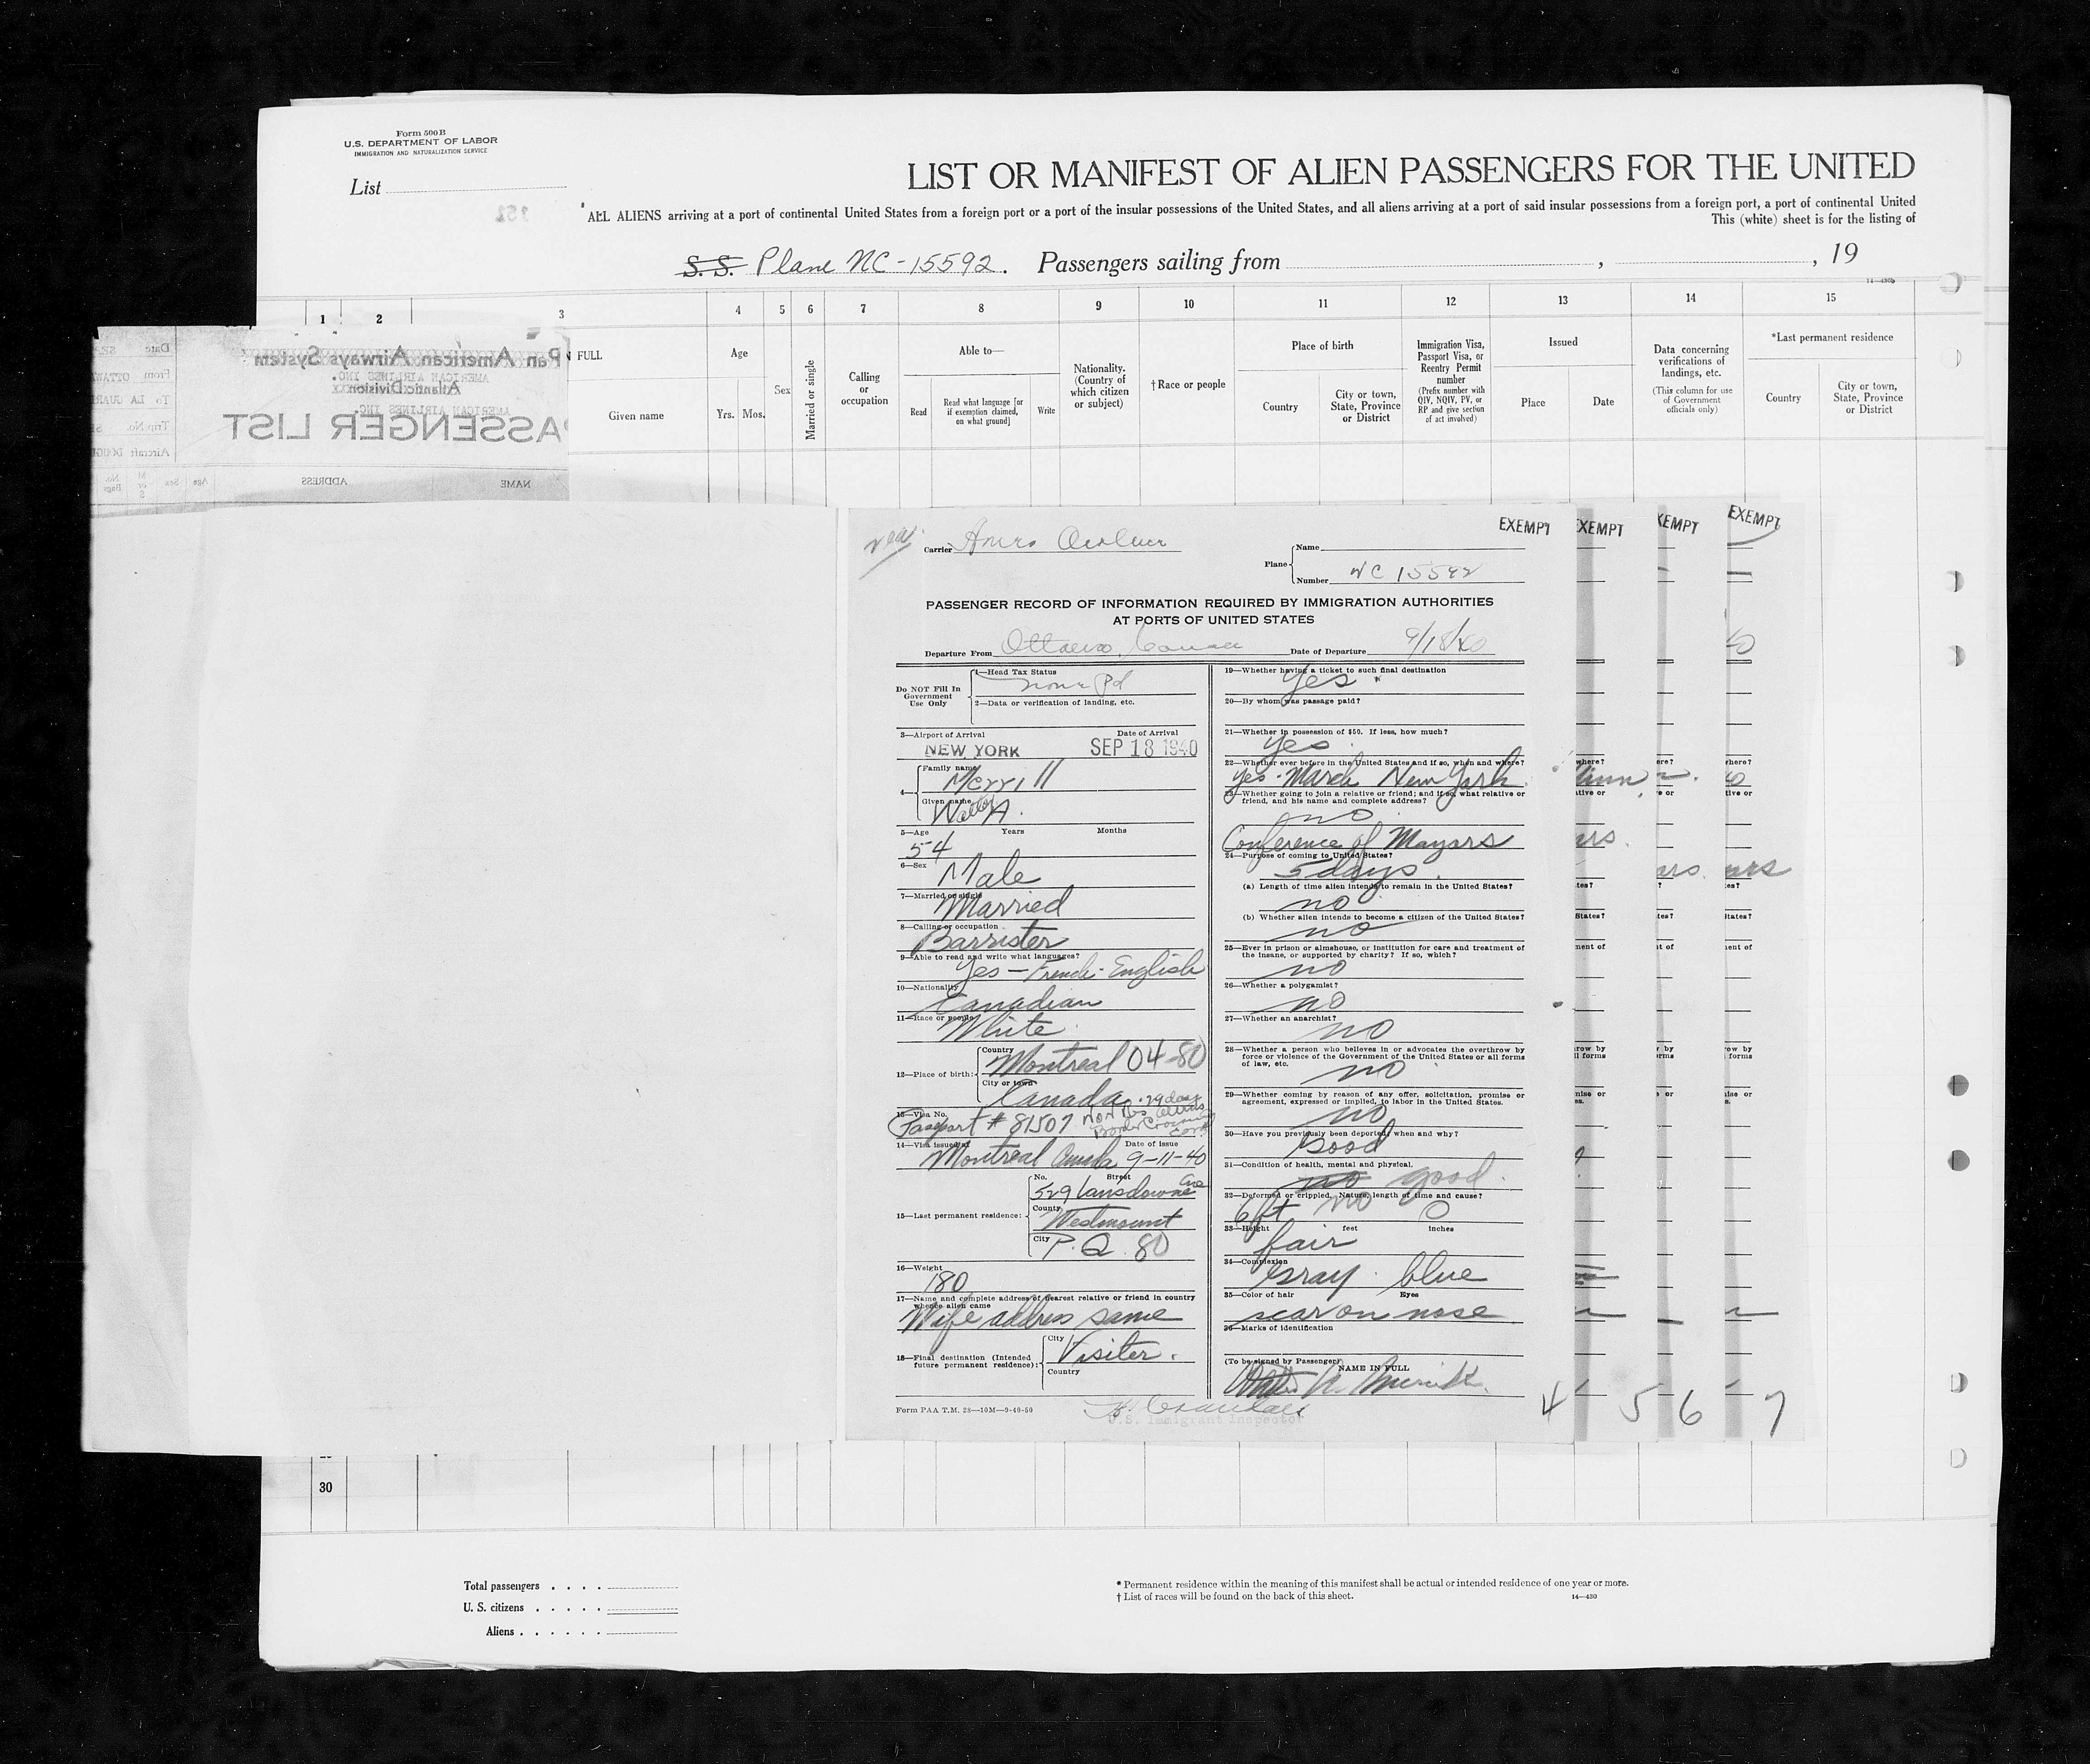 Form 500B
U.S. DEPARTMENT OF LABOR
IMMIGRATION AND NATURALIZATION SERVICE
List
LIST OR MANIFEST OF ALIEN PASSENGERS FOR THE UNITED
ALL ALIENS arriving at a port of continental United States from a foreign port or a port of the insular possessions of the United States, and all aliens arriving at a port of said insular possessions from a foreign port, a port of continental United
This (white) sheet is for the listing of
S.S. Plane NC-15592. Passengers sailing from , , 19
14—430b
1 2 3 4 5 6 7 8 9 10 11 12 13 14 15
FULL
Given name
Age
Yrs. Mos.
Sex
Married or single
Calling or occupation
Able to—
Read
Read what language [or if exemption claimed, on what ground]
Write
Nationality. (Country of which citizen or subject)
†Race or people
Place of birth
Country
City or town, State, Province or District
Immigration Visa, Passport Visa, or Reentry Permit number
(Prefix number with QIV, NQIV, PV, or RP and give section of act involved)
Issued
Place
Date
Data concerning verifications of landings, etc.
(This column for use of Government officials only)
*Last permanent residence
Country
City or town, State, Province or District
Pan American Airways System
AMERICAN AIRLINES INC.
Atlantic Division
AMERICAN AIRLINES INC.
PASSENGER LIST
Date
From OTTAWA
To LA GUAR
Trip No.
Aircraft DOUG
NAME ADDRESS Age Sex M or S No. Bags
EXEMPT EXEMPT EXEMPT EXEMPT
Carrier
Plane
Name
Number NC 15592
PASSENGER RECORD OF INFORMATION REQUIRED BY IMMIGRATION AUTHORITIES
AT PORTS OF UNITED STATES
Departure From Ottawa, Canada Date of Departure 9/18/40
Do NOT Fill In Government Use Only
1—Head Tax Status
none Pd
2—Data or verification of landing, etc.
3—Airport of Arrival Date of Arrival
NEW YORK SEP 18 1940
4—
Family name
Merrill
Given name
Walter A.
5—Age Years Months
54
6—Sex
Male
7—Married or single
Married
8—Calling or occupation
Barrister
9—Able to read and write what languages?
Yes - French - English
10—Nationality
Canadian
11—Race or people
White
12—Place of birth:
Country
Montreal 04-80
City or town
Canada. 29 days
13—Visa No.
Passport # 81507 Non Res Aliens Border Crossing Card
14—Visa issued at Date of issue
Montreal Canada 9-11-40
15—Last permanent residence:
No. Street
529 Lansdowne Ave
County
Westmount
City
P.Q. 80
16—Weight
180
17—Name and complete address of nearest relative or friend in country whence alien came
Wife address same
18—Final destination (Intended future permanent residence):
City
Visiter.
Country
Form PAA T.M. 28—10M—9-40-50
19—Whether having a ticket to such final destination
Yes
20—By whom was passage paid?
21—Whether in possession of $50. If less, how much?
Yes
22—Whether ever before in the United States and if so, when and where?
Yes - March New York
23—Whether going to join a relative or friend; and if so, what relative or friend, and his name and complete address?
no
Conference of Mayors
24—Purpose of coming to United States?
5 days.
(a) Length of time alien intends to remain in the United States?
no
(b) Whether alien intends to become a citizen of the United States?
no
25—Ever in prison or almshouse, or institution for care and treatment of the insane, or supported by charity? If so, which?
no
26—Whether a polygamist?
no
27—Whether an anarchist?
no
28—Whether a person who believes in or advocates the overthrow by force or violence of the Government of the United States or all forms of law, etc.
no
29—Whether coming by reason of any offer, solicitation, promise or agreement, expressed or implied, to labor in the United States.
no
30—Have you previously been deported, when and why?
Good
31—Condition of health, mental and physical.
no good.
32—Deformed or crippled. Nature, length of time and cause?
6 ft no 0
33—Height feet inches
fair
34—Complexion
gray. blue
35—Color of hair Eyes
scar on nose
36—Marks of identification
(To be signed by Passenger)
NAME IN FULL
U.S. Immigrant Inspector
4 5 6 7
30
Total passengers
U. S. citizens
Aliens
* Permanent residence within the meaning of this manifest shall be actual or intended residence of one year or more.
† List of races will be found on the back of this sheet.
14—430